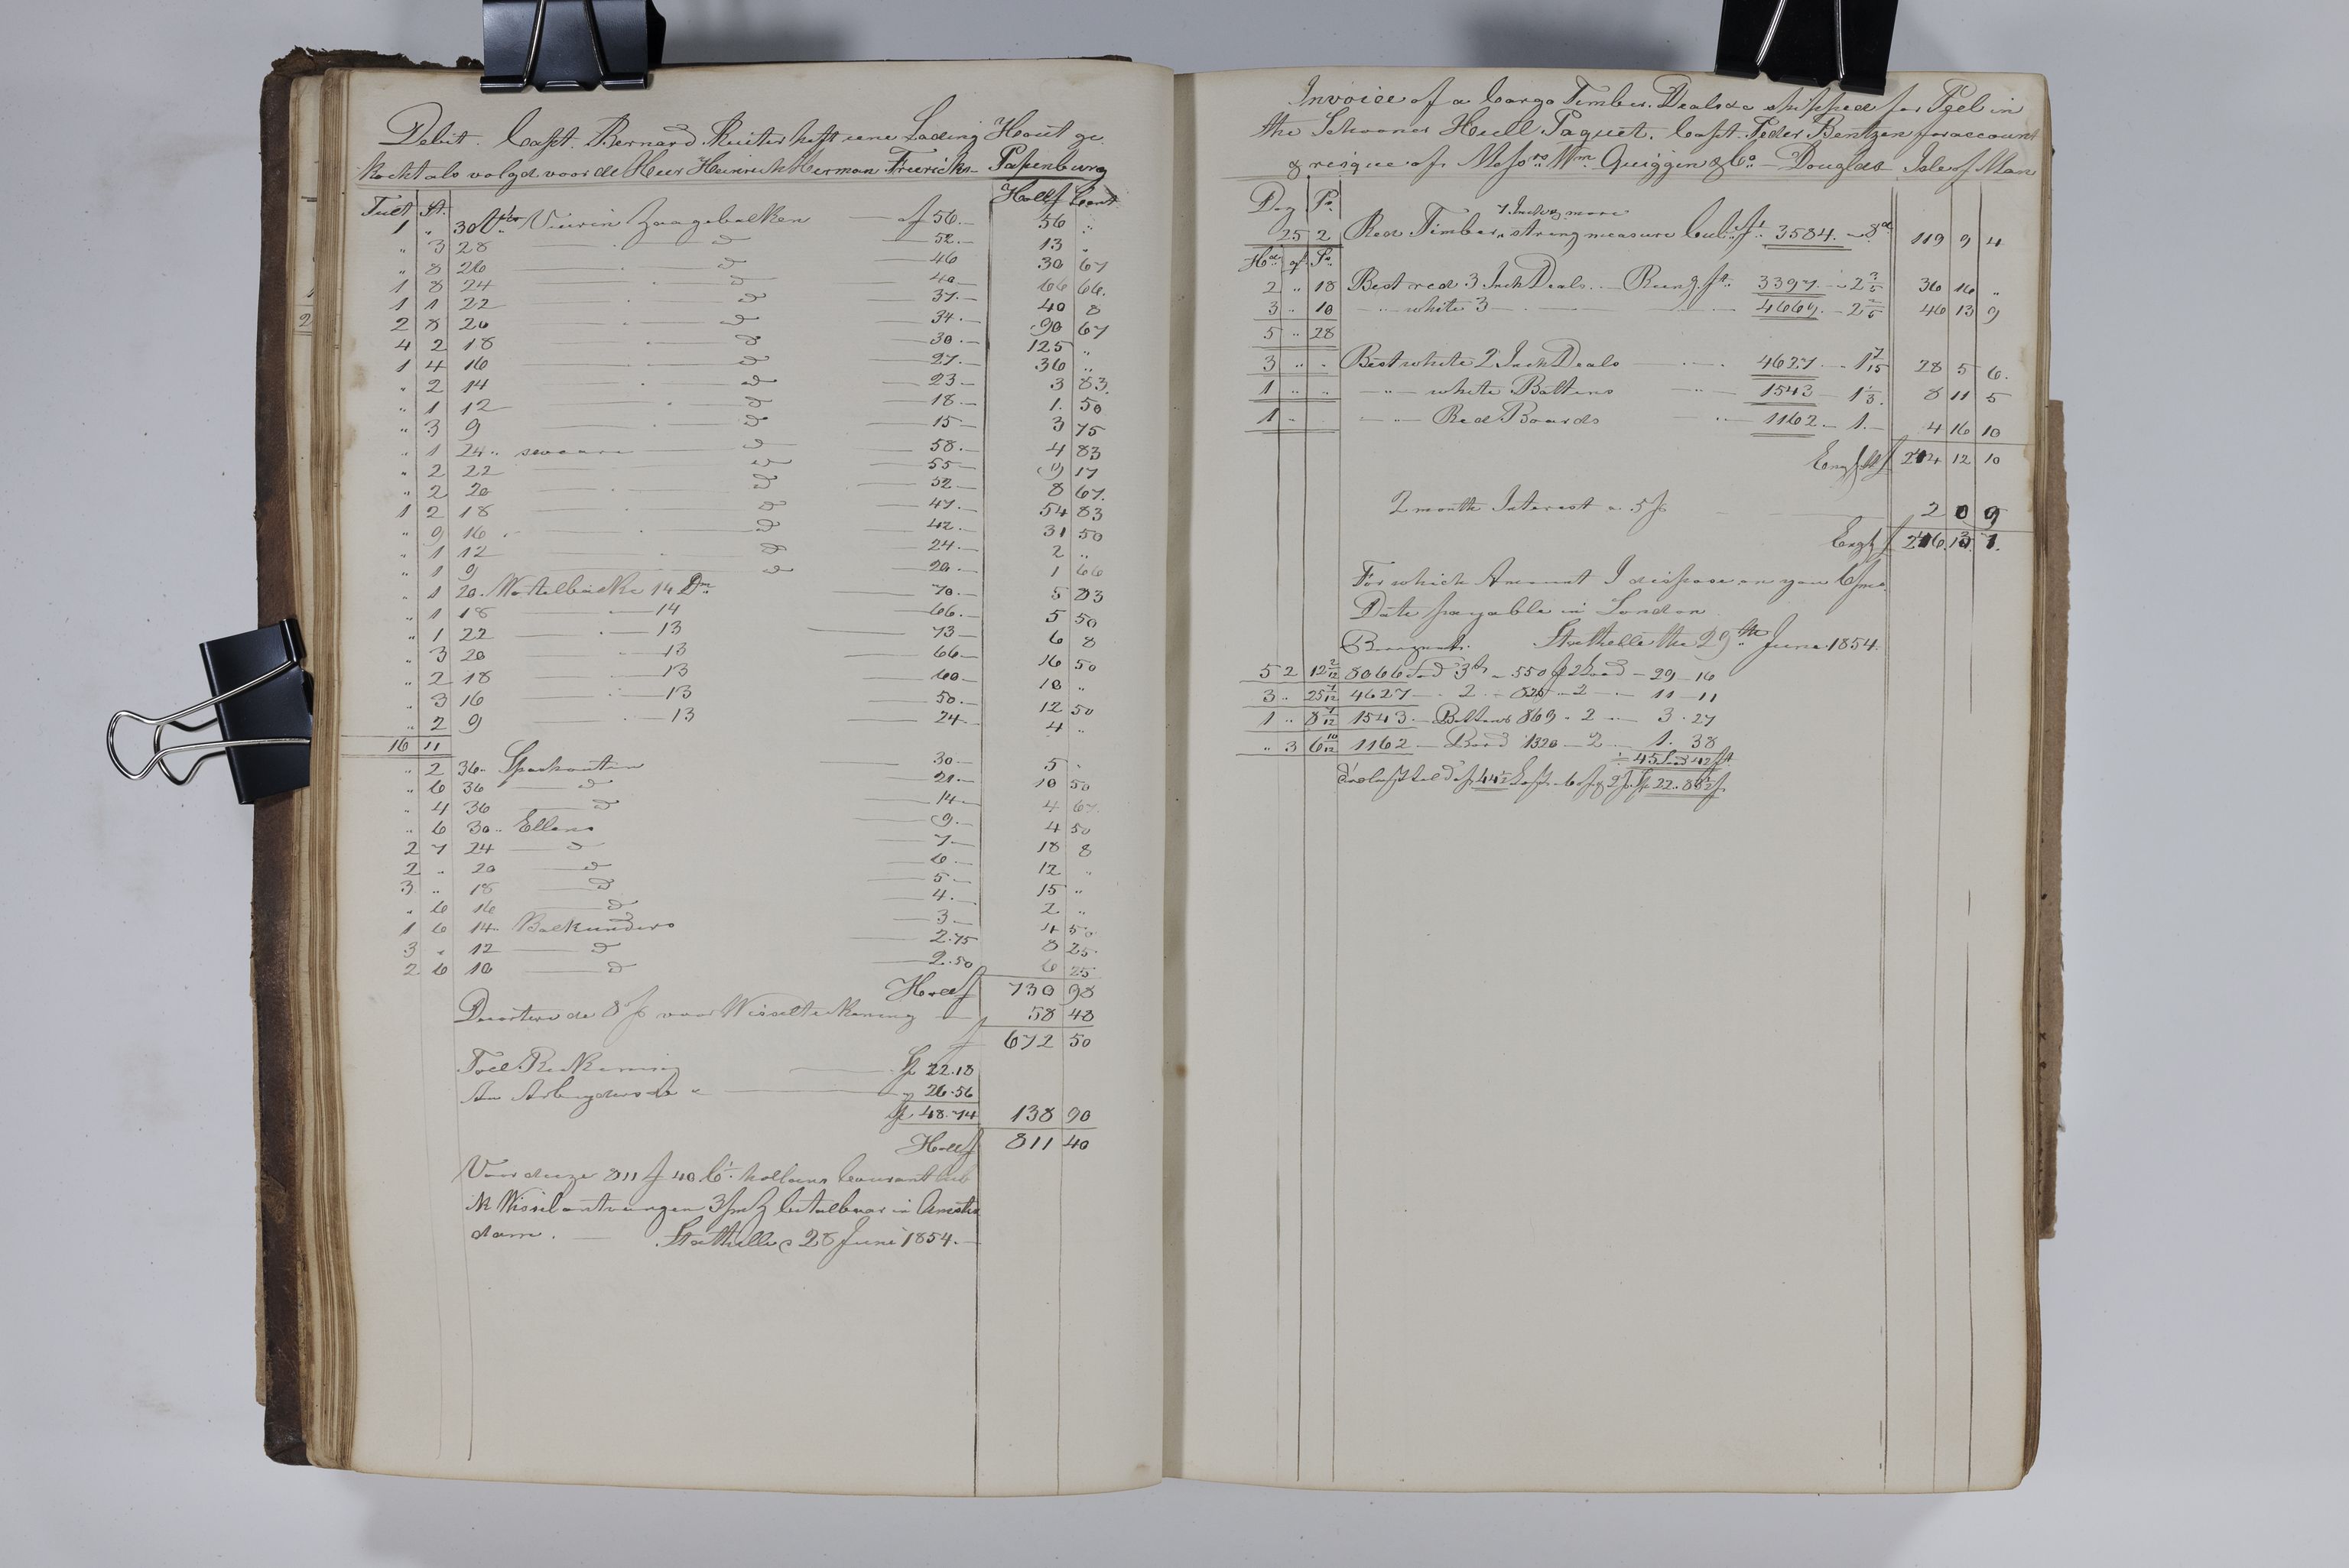 Debit. Capt. Bernard Ruiter heft eene Lading Hout ge
kocht als volgd voor de Heer Heinrich Herman Freerichs Papenburg
Tult St. Hollf Cent
1 " 30 Vueren Zaagebalken — f 56.— 56 "
" 3 28 — d — 52.— 13 "
" 8 26 — d — 46 30 67
1 8 24 — d — 40— 66 66.
1 1 22 — d — 37.— 40 8
2 8 20 — d — 34.— 90 67
4 2 18 — d — 30.— 125 "
1 4 16 — d — 27.— 36 "
" 2 14 — d — 23— 3 83.
" 1 12 — d — 18.— 1. 50
" 3 9 — d — 15— 3 75
" 1 24 " — d — 58.— 4 83
" 2 22 — d — 55— 9 17
" 2 20 — d — 52— 8 67.
1 2 18 — d — 47.— 54 83
" 9 16 — d — 42.— 31 50
" 1 12 — d — 24.— 2 "
" 1 9 — d — 20.— 1 66
" 1 20. 14 Dm — 70.— 5 83
" 1 18 — 14 — 66.— 5 50
" 1 22 — 13 — 73— 6 8
" 3 20 — 13 — 66— 16 50
" 2 18 — 13 — 60— 10 "
" 3 16 — 13 — 50.— 12 50
" 2 9 — 13 — 24— 4 "
16 11
" 2 36 " Sparhouten — 30— 5 "
" 6 36 — d — 21.— 10 50
" 4 36 — d — 14— 4 67.
" 6 30 " Ellens — 9.— 4 50
2 7 24 — d — 7— 18 8
2 " 20 — d — 6.— 12 "
3 " 18 — d — 5— 15 "
" 6 16 — d — 4.— 2 "
1 6 14 " Balkunders — 3— 4 50
3 " 12 — d — 2.75 8 25.
2 6 10 — d — 2.50 6 25
Hollf 730 98
de 8 p voor Wisseltekening — 58 48
f 672 50
Toll Rekening — Sp 22.18
An Arbeyders — " 26.56
Sp. 48.74 138 90
Hollf 811 40
Voor deeze 811 f 40 Ct. hollans Courant heb
ik Wissel antrangen 3 betalbaar in Amster
dam. — Stathelle 28 Juni 1854.—
Invoice of a Cargo Timber, Deals &c shipped for Peel in
the Schooner Hull Paquet. Capt. Peder Bentzen for account
& risque of Messrs Wm Quiggin & Co — Douglas Isle of Man
Dz Ps. 7 Inch & more
25 2 Red Timber, string measure Cub. ft. 3584. — 8d 119 9 4
Hd qt Ps.
2 " 18 Best red 3 Inch Deals. — Rung. ft. 3397. — 2 3/5 36 16 "
3 " 10 — " — white 3 — 4669. — 2 2/5 46 13 9
5 " 28
3 " " Best white 2 Inch Deals — 4627 — 1 7/15 28 5 6.
1 " " — " — white Battens — 1543 — 1 1/3. 8 11 5
1 — — " — Red Boards — 1162 — 1.— 4 16 10
244 12 10
2 month Interest a 5 p — 2 0 9
246. 13. 7.
For which Amount I dispose on you 6
Date payable in London
Stathelle the 29th June 1854.
5 2 12 2/12 8066 3 — 550 — 29 — 16
3 " 25 7/12 4627 — 2 — 825 — 2 — 11 — 11
1 " 8 7/12 1543 — Battens 869 — 2 — 3 . 27
" 3 6 10/12 1162 — Bord 1320 — 2 — 1. 38